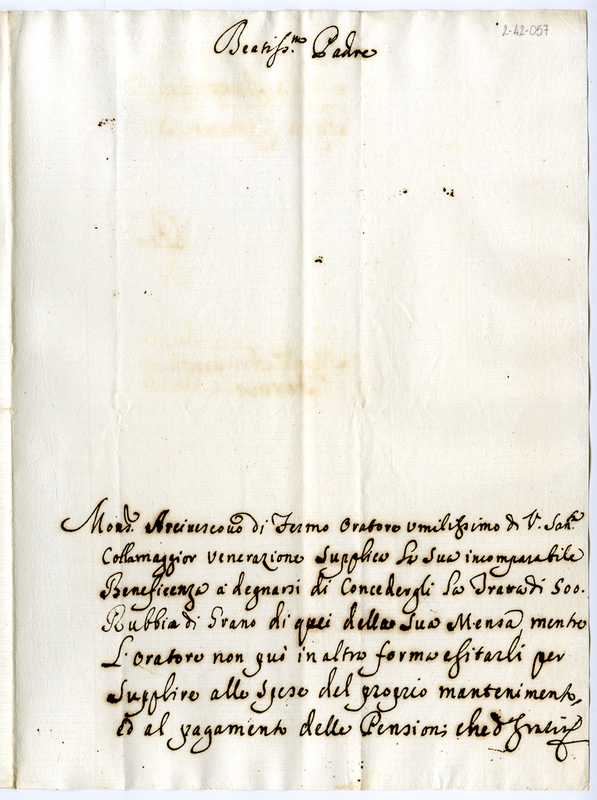 2-42-057
Beatiss.mo Padre
Mons.r Arciuescouo di Fermo Oratore vmilissimo di V. San.tà
Colla maggior venerazione Supplica La Sua incomparabile
Beneficenza a degnarsi di Concedergli La Tratta di 500.
Rubbia di Grano di quei della Sua Mensa, mentre
L'Oratore non può in altra forma esitarli per
Supplire alle Spese del proprio mantenimento,
ed al pagamento delle Pensioni, che